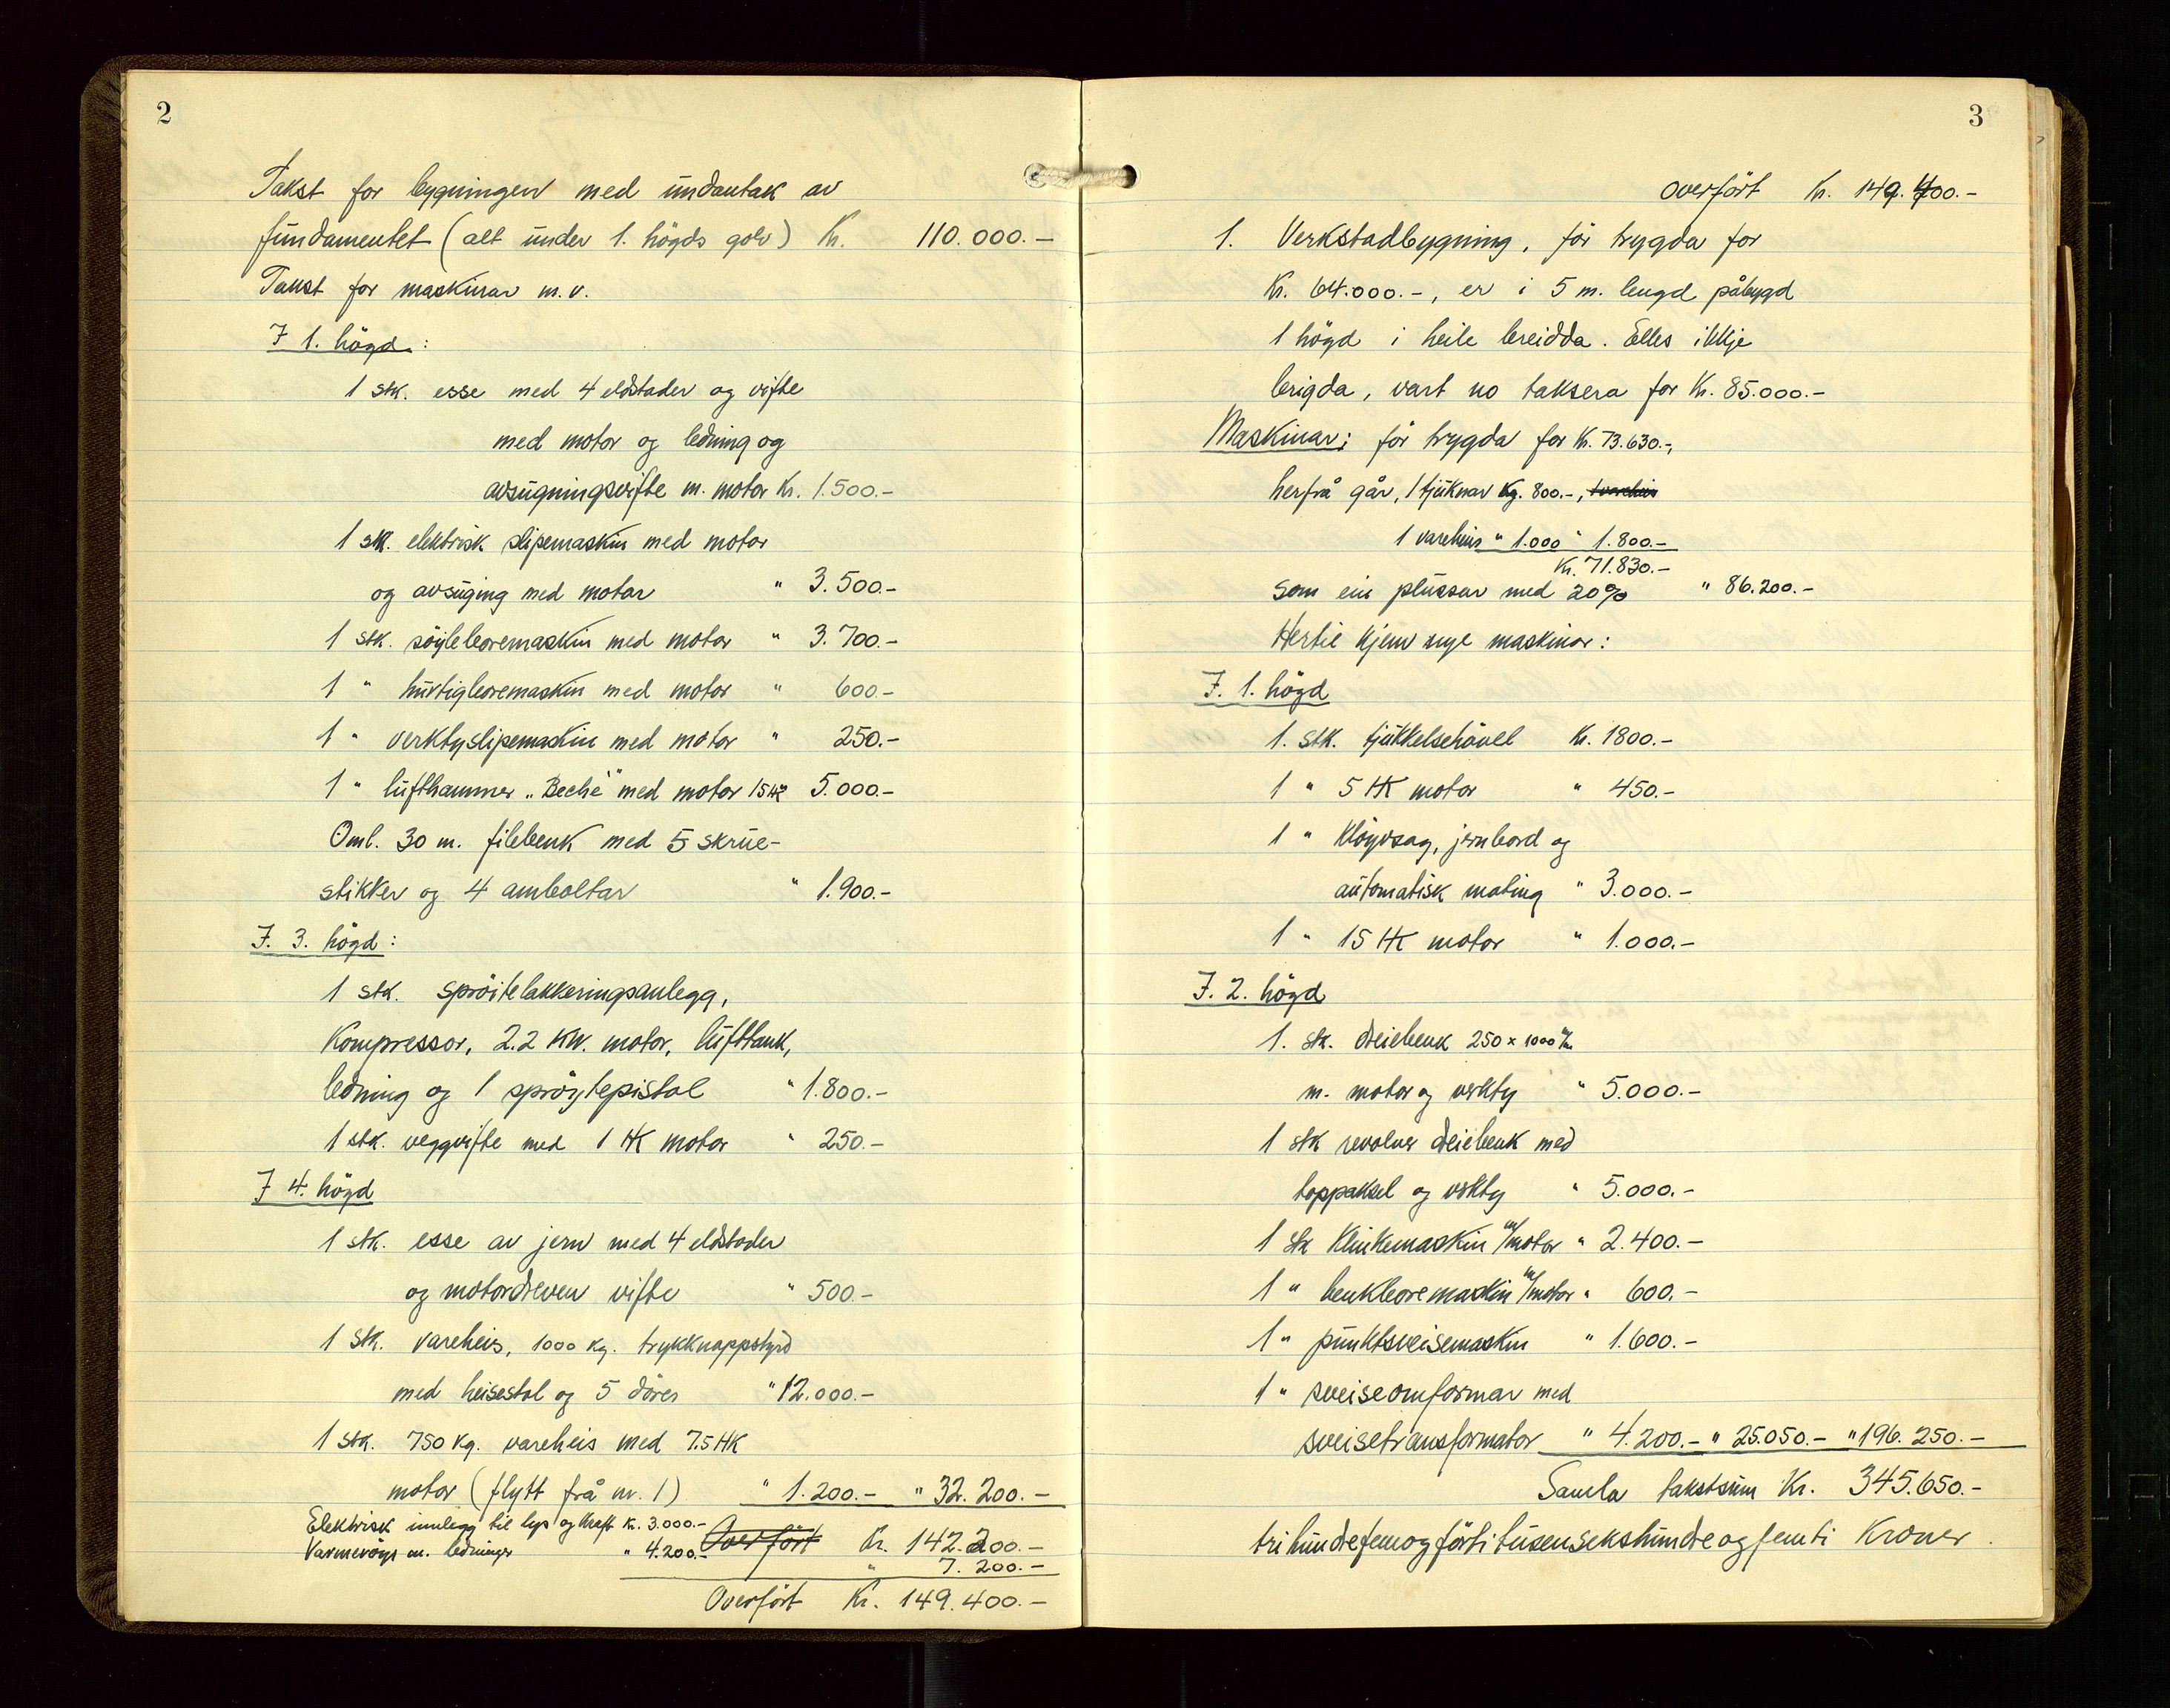 2
Takst for bygningen med undantak av
fundamentet (alt under 1. högds golv) Kr. 110.000.-
Takst for maskinar m.v.
I 1. högd:
1 stk. esse med 4 eldstader og vifte
med motor og ledning og
avsugningsvifte m. motor Kr. 1.500.-
1 stk. elektrisk slipemaskin med motor
og avsuging med motor " 3.500.-
1 stk. söyleboremaskin med motor " 3.700.-
1 " hurtigboremaskin med motor " 600.-
1 " verktyslipemaskin med motor " 250.-
1 " lufthammer „Beché" med motor 15 HK 5.000.-
Oml. 30 m. filebenk med 5 skrue-
stikker og 4 amboltar " 1.900.-
I. 3. högd:
1 stk. spröitelakkeringsanlegg,
Kompressor, 2.2 KW. motor, lufttank,
ledning og 1 spröytepistol " 1.800.-
1 stk. veggvifte med 1 HK motor " 250.-
I 4. högd
1 stk. esse av jern med 4 eldstader
og motordreven vifte " 500.-
1 stk. vareheis, 1000 kg. trykknappstyrd
med heisestol og 5 dörer " 12.000.-
1 stk. 750 kg. vareheis med 7.5 HK
motor (flytt frå nr. 1) " 1.200.- " 32.200.-
Elektrisk innlegg til lys og kraft Kr. 3.000.-
Overfört Kr. 142.200.-
Varmeröyr m. ledninger " 4.200.-
" 7.200.-
Overfört Kr. 149.400.-
3
overfört Kr. 149.400.-
1. Verkstadbygning, för trygda for
Kr. 64.000.-, er i 5 m. lengd påbygd
1 högd i heile breidda. Elles ikkje
brigda, vart no taksera for Kr. 85.000.-
Maskinar: för trygda for Kr. 73.630.-,
herfrå går, 1 tjuknar Kr. 800.-, 1 vareheis
1 vareheis " 1.000 " 1.800.-
Kr. 71.830.-
som ein plussar med 20% " 86.200.-
Hertil kjem nye maskinar:
I. 1. högd
1. stk. tjukkelsehövel Kr. 1800.-
1 " 5 HK motor " 450.-
1 " Klöyvsag, jernbord og
automatisk mating " 3.000.-
1 " 15 HK motor " 1.000.-
I. 2. högd
1. stk. dreiebenk 250 x 1000 m/m
m. motor og verkty " 5.000.-
1 stk revolver dreiebenk med
toppaksel og verkty " 5.000.-
1 stk Klinkemaskin m/motor " 2.400.-
1 " benkboremaskin m/motor " 600.-
1 " punktsveisemaskin " 1.600.-
1 " sveiseomformar med
sveisetransformator " 4.200.- " 25.050.- " 196.250.-
Samla takstsum Kr. 345.650.-
trihundrefemogförtitusensekshundreogfemti Kroner.